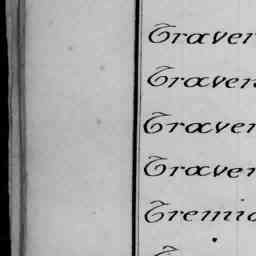 Traver
Traver
Traver
Traver
Tremi